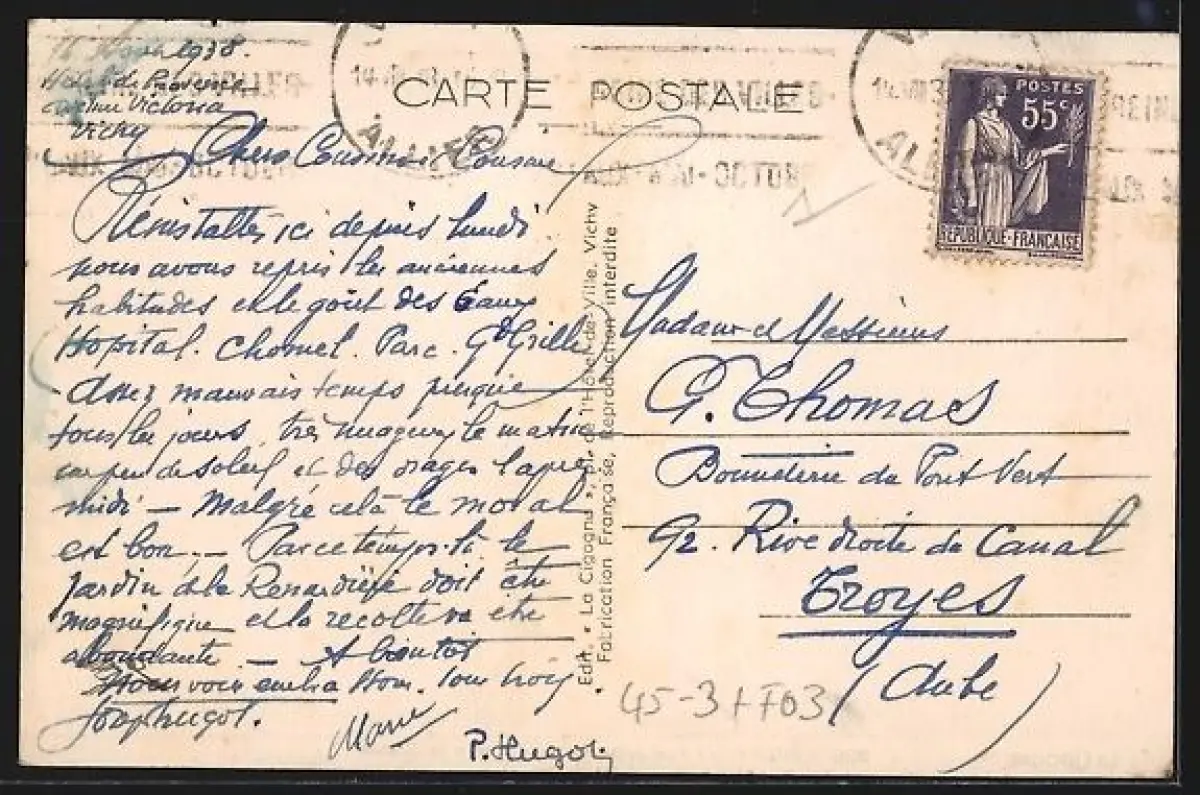 1938.
Hôtel de Provence
Victoria
Vichy
CARTE POSTALE
Chers Cousins et Cousine
Réinstallés ici depuis lundi
nous avons repris les anciennes
habitudes et le goût des Eaux
Hopital. Chomel. Parc. Gde Grille
Assez mauvais temps presque
tous les jours, très nuageux le matin
un peu de soleil et des orages l'après
midi — Malgré cela le moral
est bon. — Par ce temps-là le
jardin de la Renardière doit être
magnifique et la récolte va être
abondante — A bientôt
tous trois.
Marie
P. Hugot.
Edit. « La Cigogne », de l'Hôtel-de-Ville, Vichy
Fabrication Française, Reproduction interdite
POSTES
55c
REPUBLIQUE-FRANÇAISE
OCTOBRE
Madame et Messieurs
G. Thomas
Bonneterie du Pont Vert
92. Rive droite du Canal
Troyes
(Aube)
45-3